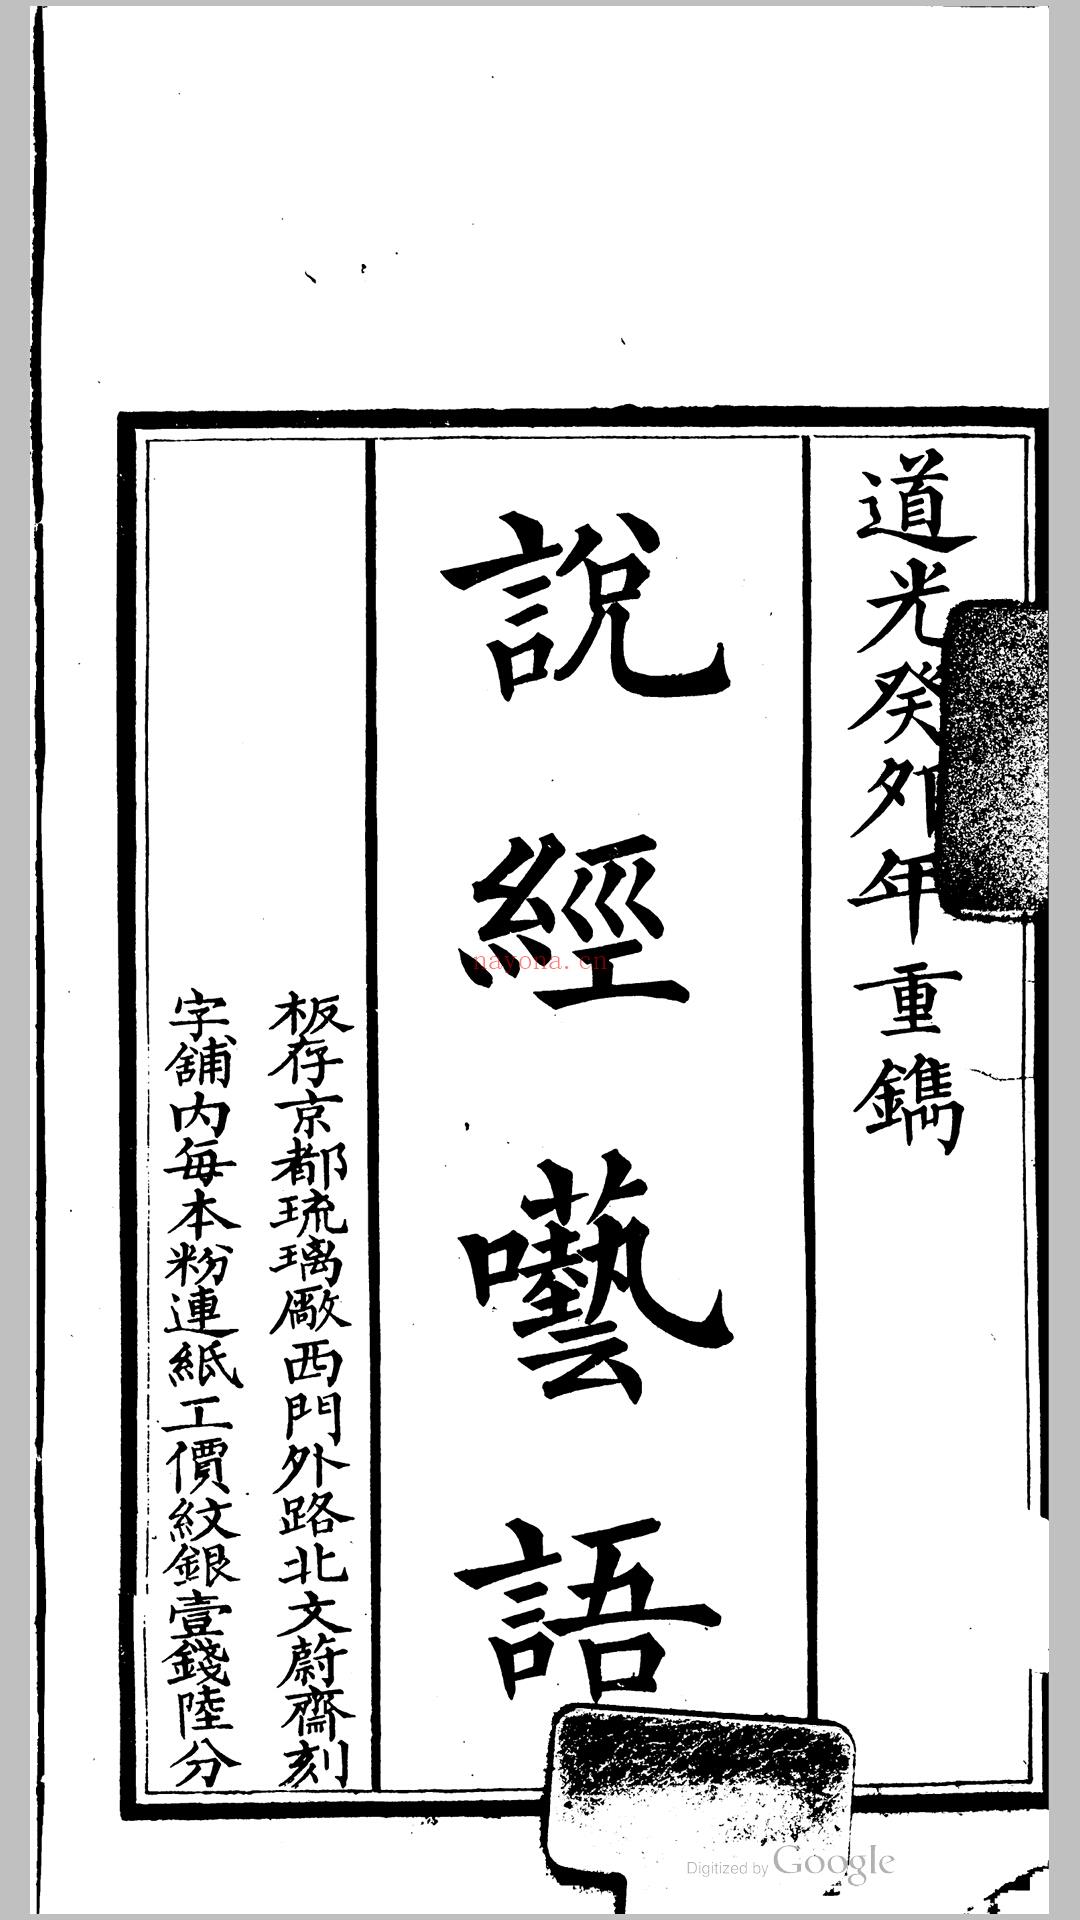 道光癸卯年重鐫
說經囈語
板存京都琉璃廠西門外路北文蔚齋刻
字舖內每本粉連紙工價紋銀壹錢陸分
nayona.cn
Digitized by Google